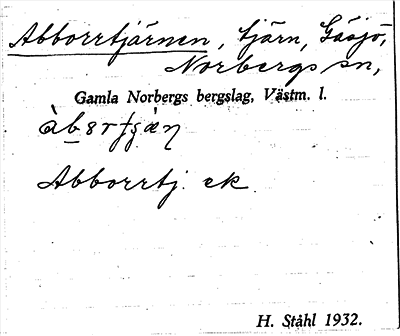 Abborrtjärnen, tjärn, Gåsjö,
Norbergs sn,
Gamla Norbergs bergslag, Västm. l.
Abborrtj. ek
H. Ståhl 1932.